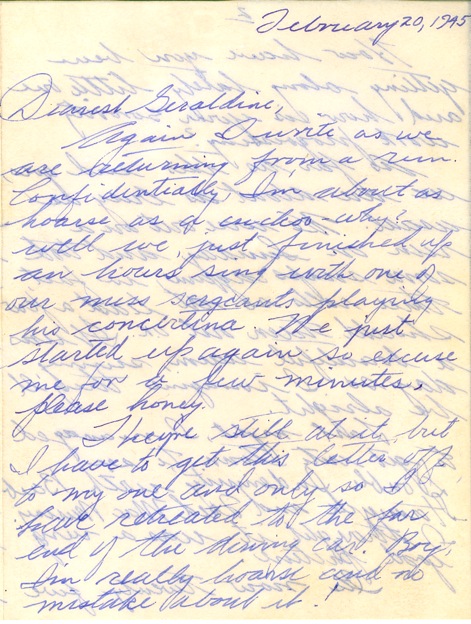 February 20, 1945
Dearest Geraldine,
Again I write as we
are returning from a run.
Confidentially, I'm about as
hoarse as a cuckoo - why?
well we, just finished up
an hours sing with one of
our mess sergeants playing
his concertina. We just
started up again so excuse
me for a few minutes,
please honey.
They're still at it, but
I have to get this letter off
to my one and only so I
have retreated to the far
end of the dining car. Boy,
I'm really hoarse and no
mistake about it!